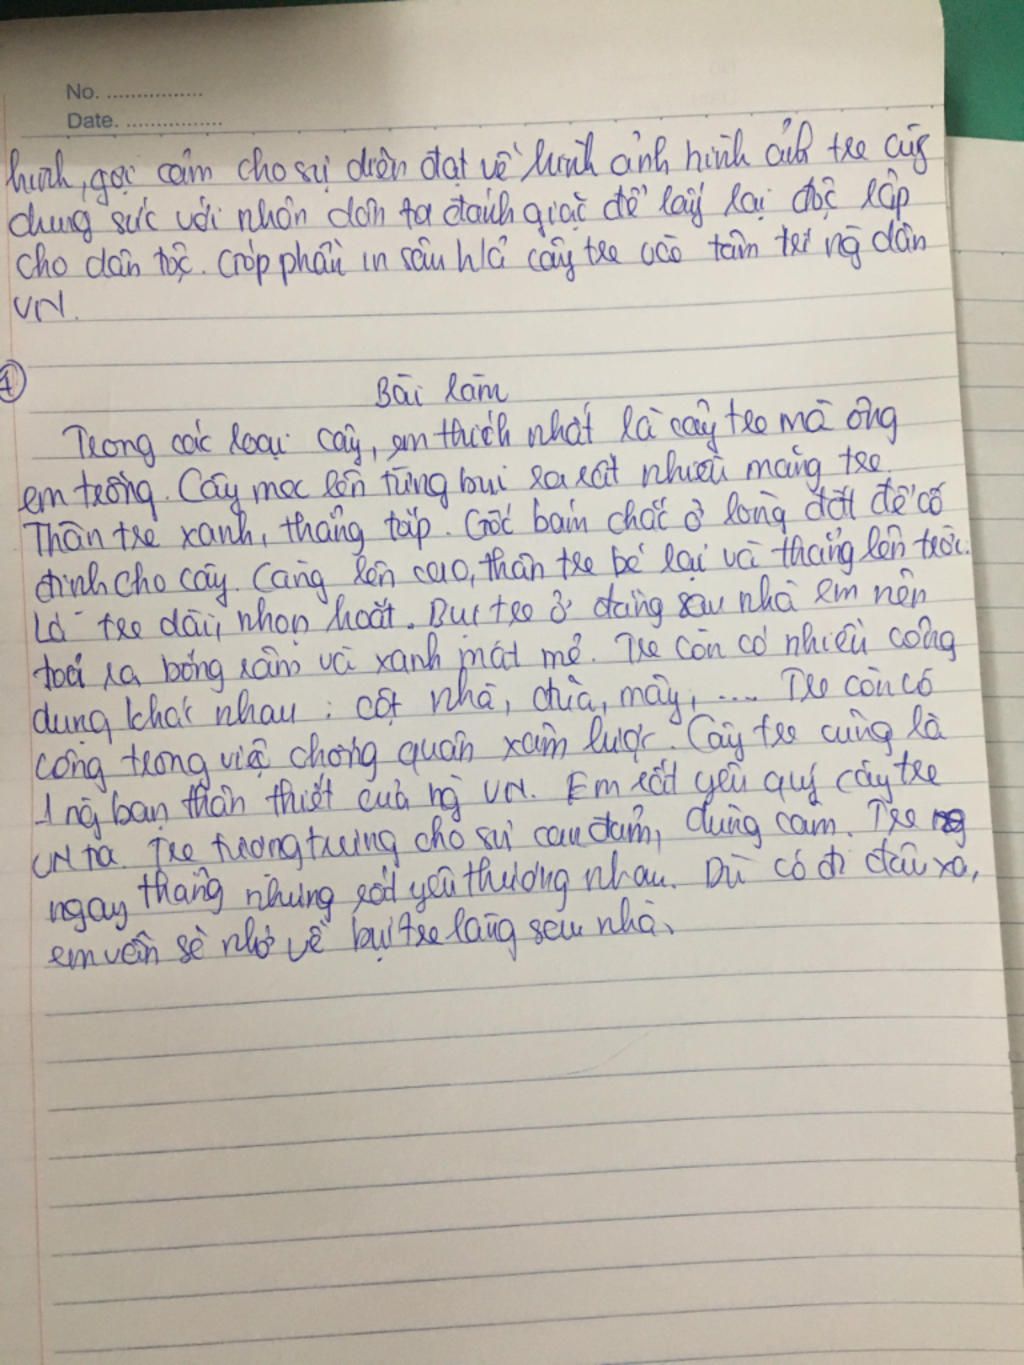 No. ................
Date. ................
hình, gợi cảm cho sự diễn đạt về hình ảnh hình ảnh tre cùng
chung sức với nhân dân ta đánh giặc để lấy lại độc lập
cho dân tộc. Góp phần in sâu h/ả cây tre vào tâm trí ng dân
VN.
①
Bài làm
Trong các loại cây, em thích nhất là cây tre mà ông
em trồng. Cây mọc lên từng bụi ra rất nhiều măng tre.
Thân tre xanh, thẳng tắp. Gốc bám chắc ở lòng đất để cố
định cho cây. Càng lên cao, thân tre bé lại và thẳng lên trời.
Lá tre dài, nhọn hoắt. Bụi tre ở đằng sau nhà em nên
toả ra bóng râm và xanh mát mẻ. Tre còn có nhiều công
dụng khác nhau : cột nhà, đũa, mây, .... Tre còn có
công trong việc chống quân xâm lược. Cây tre cũng là
1 ng bạn thân thiết của ng VN. Em rất yêu quý cây tre
VN ta. Tre tượng trưng cho sự can đảm, dũng cảm. Tre
ngay thẳng nhưng rất yêu thương nhau. Dù có đi đâu xa,
em vẫn sẽ nhớ về bụi tre làng sau nhà.